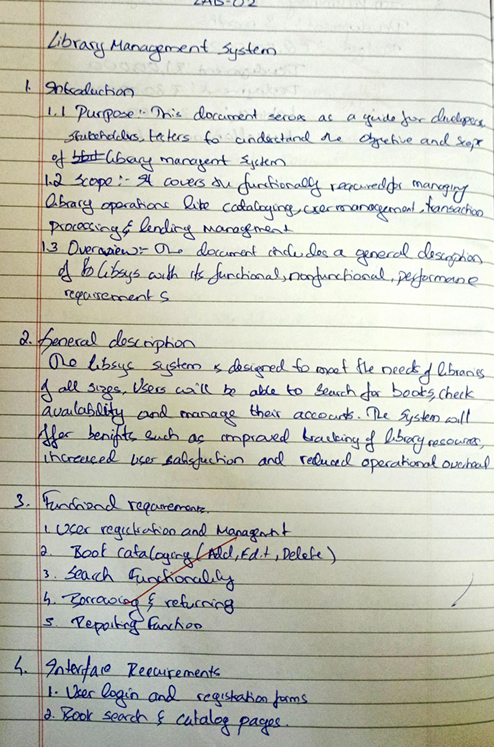 LAB-02
Library Management System
1. Introduction
1.1 Purpose :- This document serves as a guide for developers
stakeholders, testers to understand the objective and scope
of library managent system
1.2 Scope :- It covers the functionally required for managing
library operations like cataloging, user management, transaction
processing & lending management
1.3 Overview :- The document includes a general description
of libsys with its functional, nonfunctional, performance
requirement s
2. General description
The libsys system is designed to meet the needs of libraries
of all sizes. Users will be able to search for books, check
availability and manage their accounts. The system will
offer benifits such as improved tracking of library resources,
increased user satisfaction and reduced operational overhead
3. Functional requirements.
1. User registration and Managemnt
2. Book cataloging (Add, Edit, Delete)
3. Search functionality
4. Borrowing & returning
5. Reporting function
4. Interface Requirements
1. User login and registration forms
2. Book search & catalog pages.